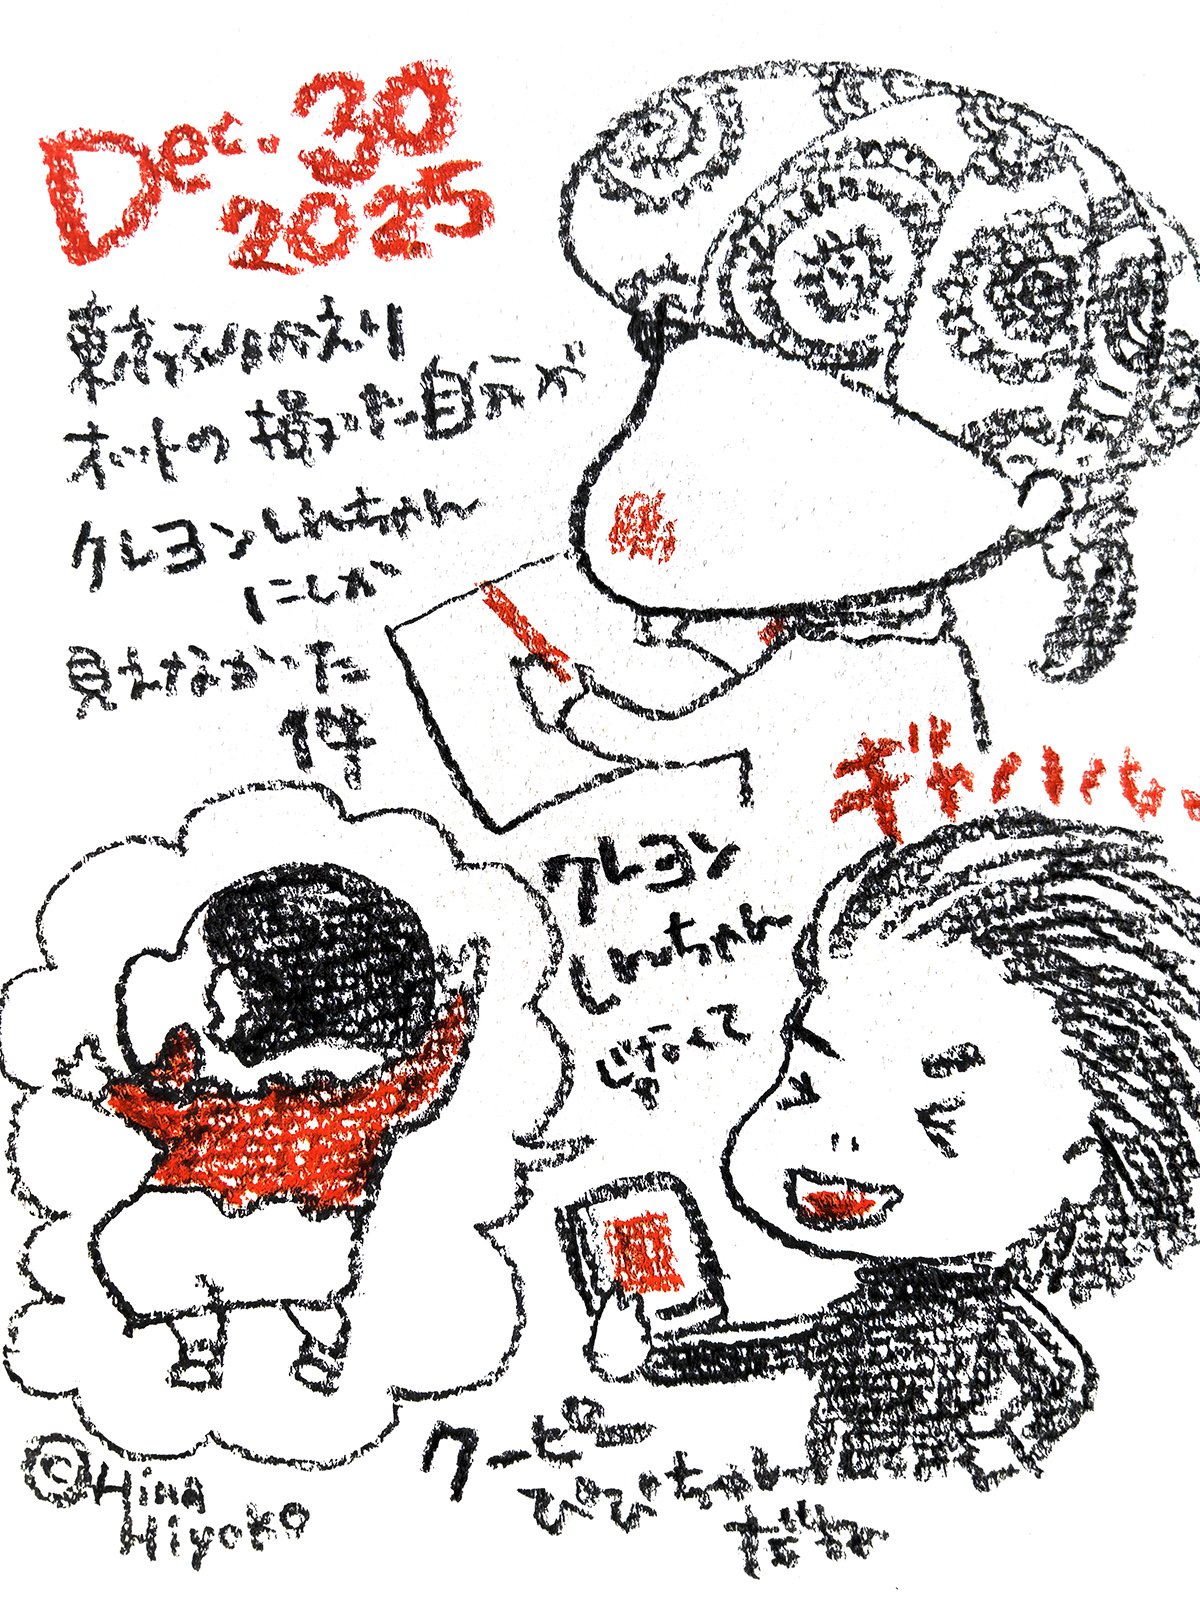 Dec. 30
2025
東京ってひっかえり
ネットの 撮った自示が
クレヨンしんちゃん
にしか
見えなかった
件
ギャハハハハ。
クレヨン
しんちゃん
じゃなくて
クーピー
ぴぴちゃん
だね
©Hina
Hiyoko